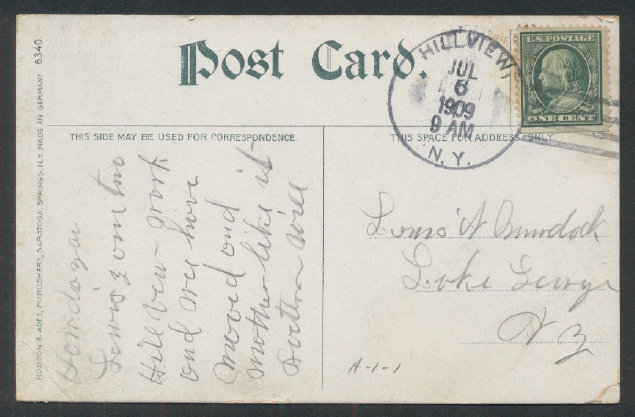 Post Card.
HILLVIEW
JUL
6
1909
9 AM
N.Y.
U.S. POSTAGE
ONE CENT
THIS SIDE MAY BE USED FOR CORRESPONDENCE.
THIS SPACE FOR ADDRESS ONLY
ROBSON & ADEE, PUBLISHERS, SARATOGA SPRINGS, N.Y. MADE IN GERMANY 6340
Howdoyu
Lewis
Hill vew work
and wee have
moved and
mother like it
will
Louis A Burdock
Lake George
N y
A-1-1